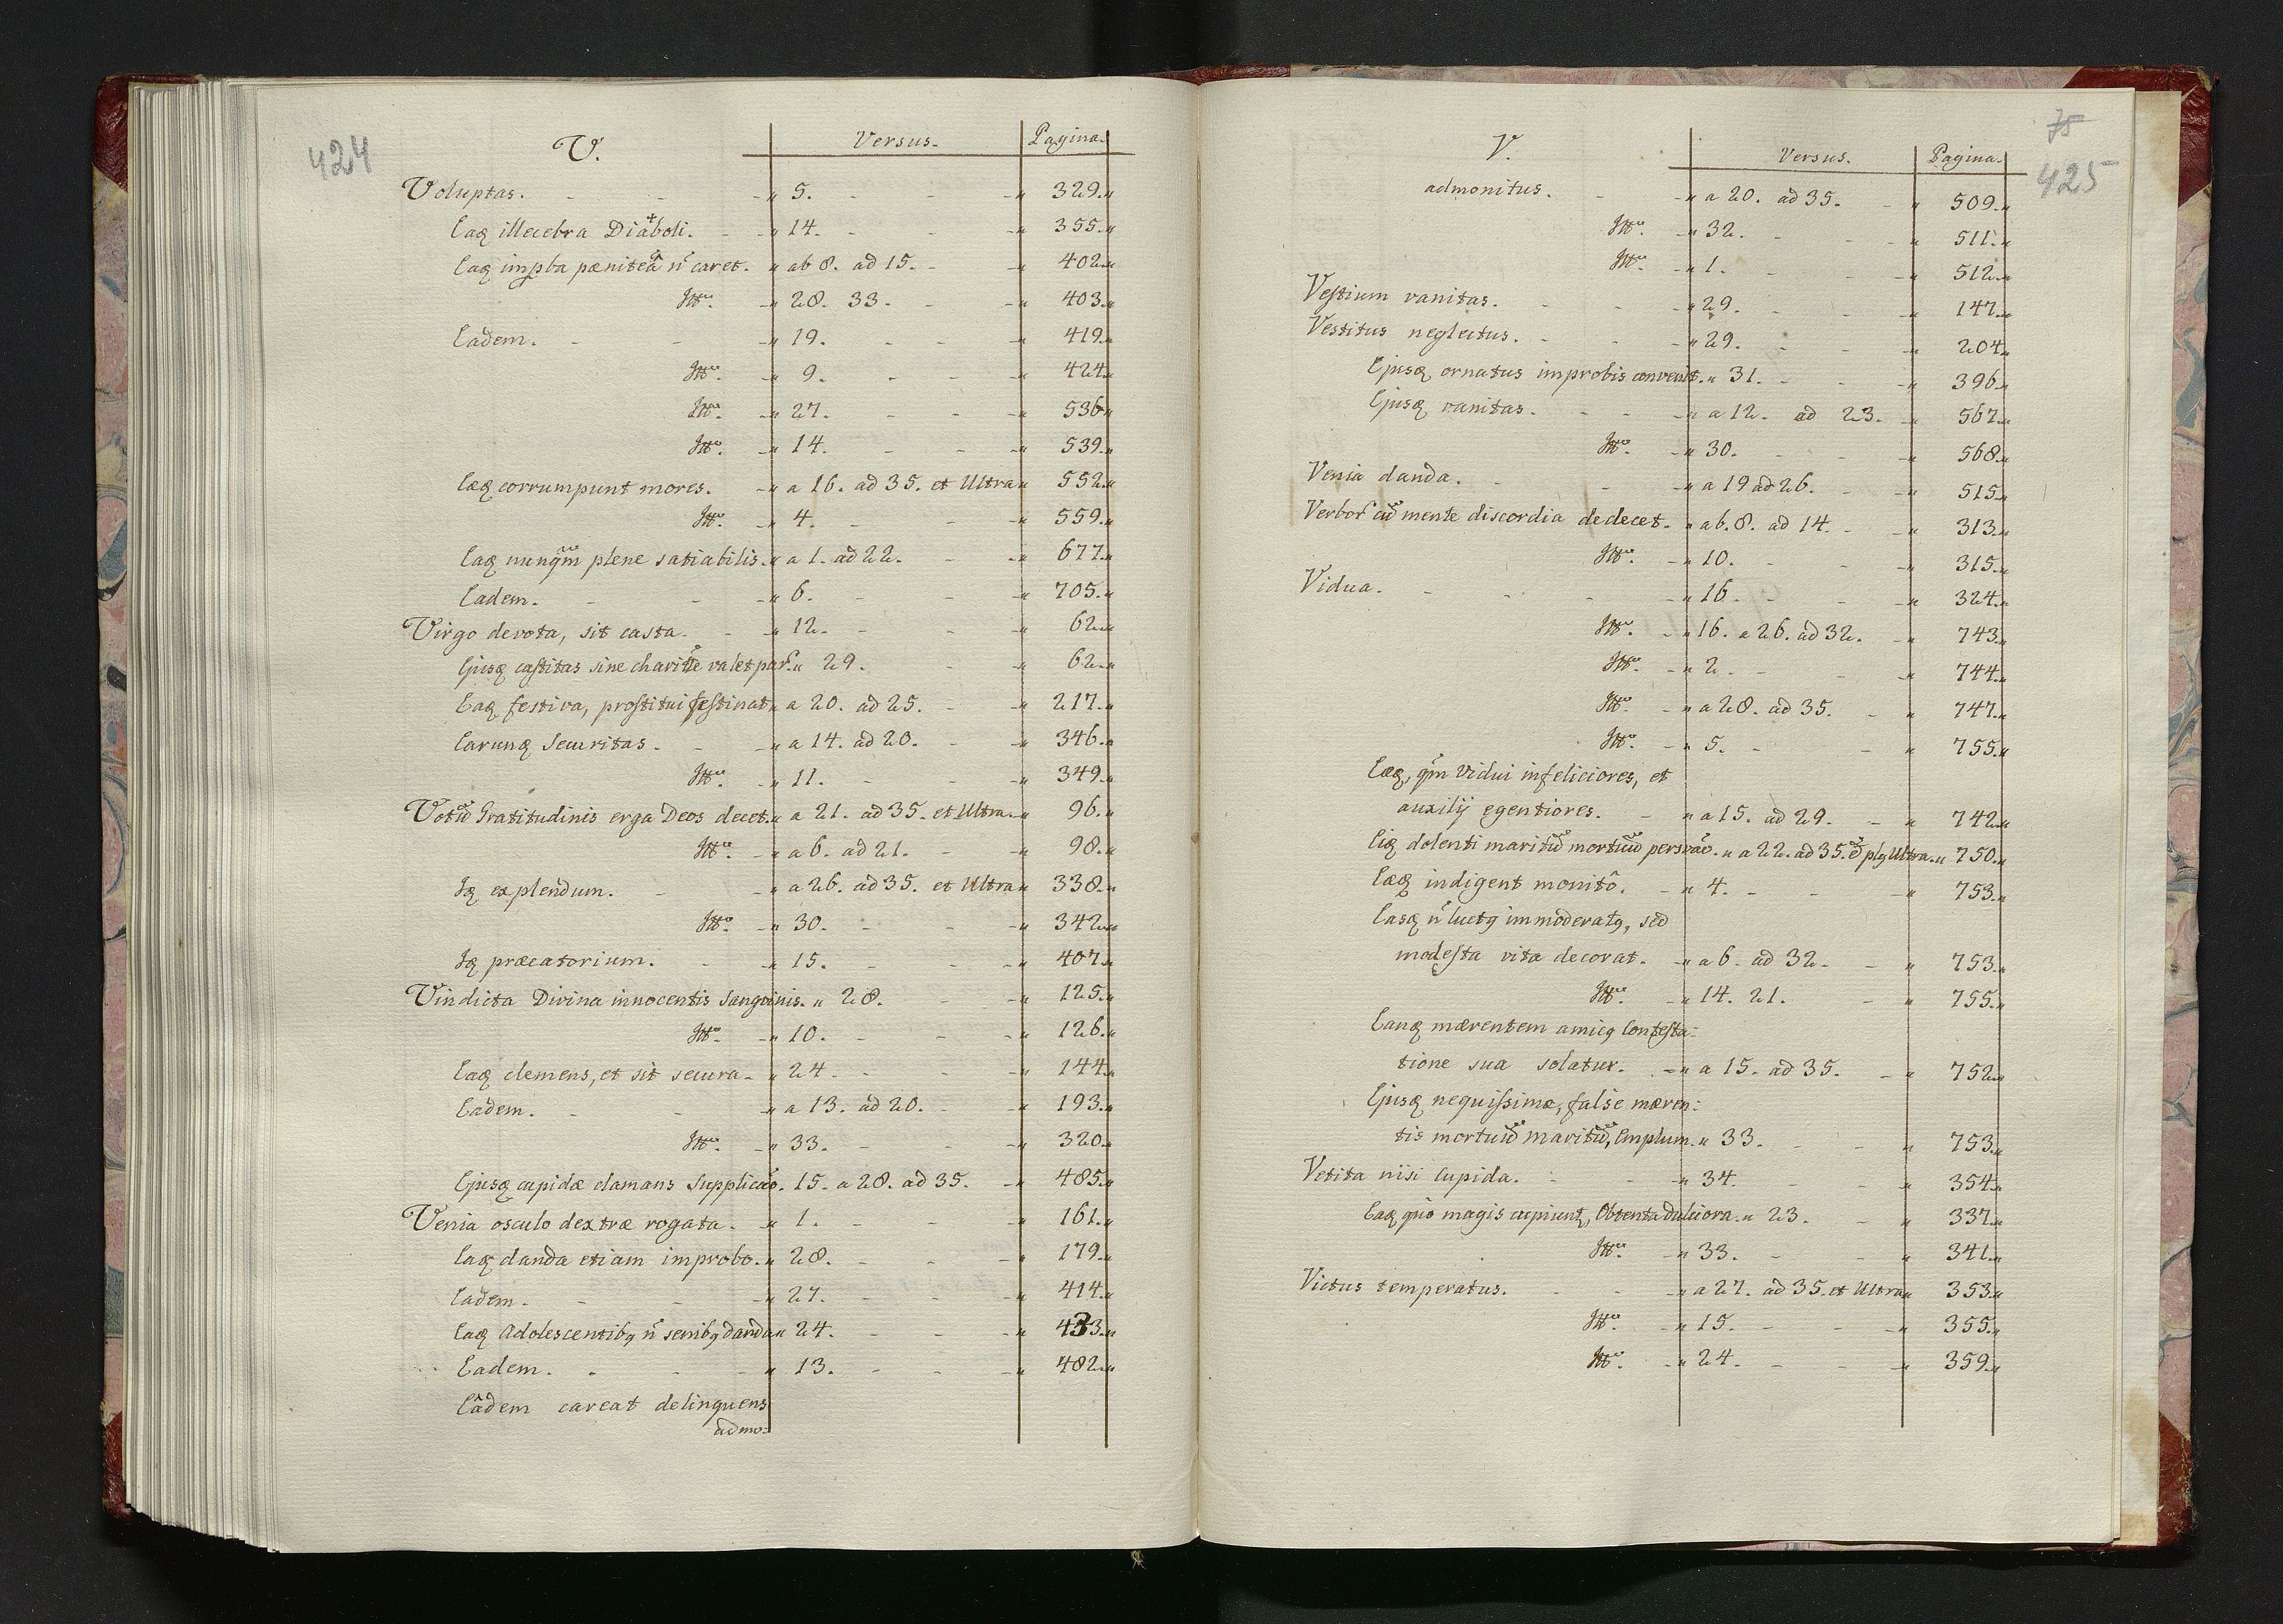 424
V. Versus. Pagina.
Voluptas. 5. 329.
Eaq illecebra Diaboli. 14. 355.
Eaq impba pænitea n caret. ab 8. ad 15. 402.
Itt. 28. 33. 403.
Eadem. 19. 419.
Itt. 9. 424.
Itt. 27. 536.
Itt. 14. 539.
Eæq corrumpunt mores. a 16. ad 35. et Ultra 552.
Itt. 4. 559.
Eaq nunqm plene satiabilis. a 1. ad 22. 677.
Eadem. 6. 705.
Virgo devota, sit casta. 12. 62.
Ejusq castitas sine charitte valet par. 29. 62.
Eaq festiva, prostitui festinat a 20. ad 25. 217.
Earunq Securitas. a 14. ad 20. 346.
Itt. 11. 349.
Votu Gratitudinis erga Deos decet. a 21. ad 35. et Ultra. 96.
Itt. a 6. ad 21. 98.
Iq explendum. a 26. ad 35. et Ultra 338.
Itt. 30. 342.
Iq præcatorium. 15. 407.
Vindicta Divina innocentis Sanguinis. 28. 125.
Itt. 10. 126.
Eaq clemens, et sit secura. 24. 144.
Eadem. a 13. ad 20. 193.
Itt. 33. 320.
Ejusq cupidæ clamans Supplicao. 15. a 28. ad 35. 485.
Venia osculo dextræ rogata. 1. 161.
Eaq danda etiam improbo. 28. 179.
Eadem. 27. 414.
Eaq Adolescentibq n senibq danda 24. 433.
Eadem. 13. 482.
Eâdem careat delinquens
admo:
75
425
V. Versus. Pagina.
admonitus. a 20. ad 35. 509.
Itt. 32. 511.
Itt. 1. 512.
Vestium vanitas. 29. 147.
Vestitus neglectus. 29. 204.
Ejusq ornatus improbis convenit. 31. 396.
Ejusq vanitas. a 12. ad 23. 567.
Itt. 30. 568.
Venia danda. a 19 ad 26. 515.
Verbor cu mente discordia dedecet. ab. 8. ad 14. 313.
Itt. 10. 315.
Vidua. 16. 324.
Itt. 16. a 26. ad 32. 743.
Itt. 2. 744.
Itt. a 28. ad 35. 747.
Itt. 5. 755.
Eæq, qm Vidui infeliciores, et
auxilij egentiores. a 15. ad 29. 742.
Eiq dolenti maritu mortuu persvao. a 22. ad 35. & plq Ultra. 750.
Eæq indigent monitô. 4. 753.
Easq n luctq immoderatq, sed
modesta vita decorat. a 6. ad 32. 753.
Itt. 14. 21. 755.
Eanq mærentem amicq Contesta:
tione sua solatur. a 15. ad 35. 752.
Ejusq nequissimæ, false mæren:
tis mortuu maritu, Emplum. 33. 753.
Vetita nisi Cupida. 34. 354.
Eaq quo magis cupiunt, Obtenta dulciora. 23. 337.
Itt. 33. 341.
Victus temperatus. a 27. ad 35. et Ultra 353.
Itt. 15. 355.
Itt. 24. 359.